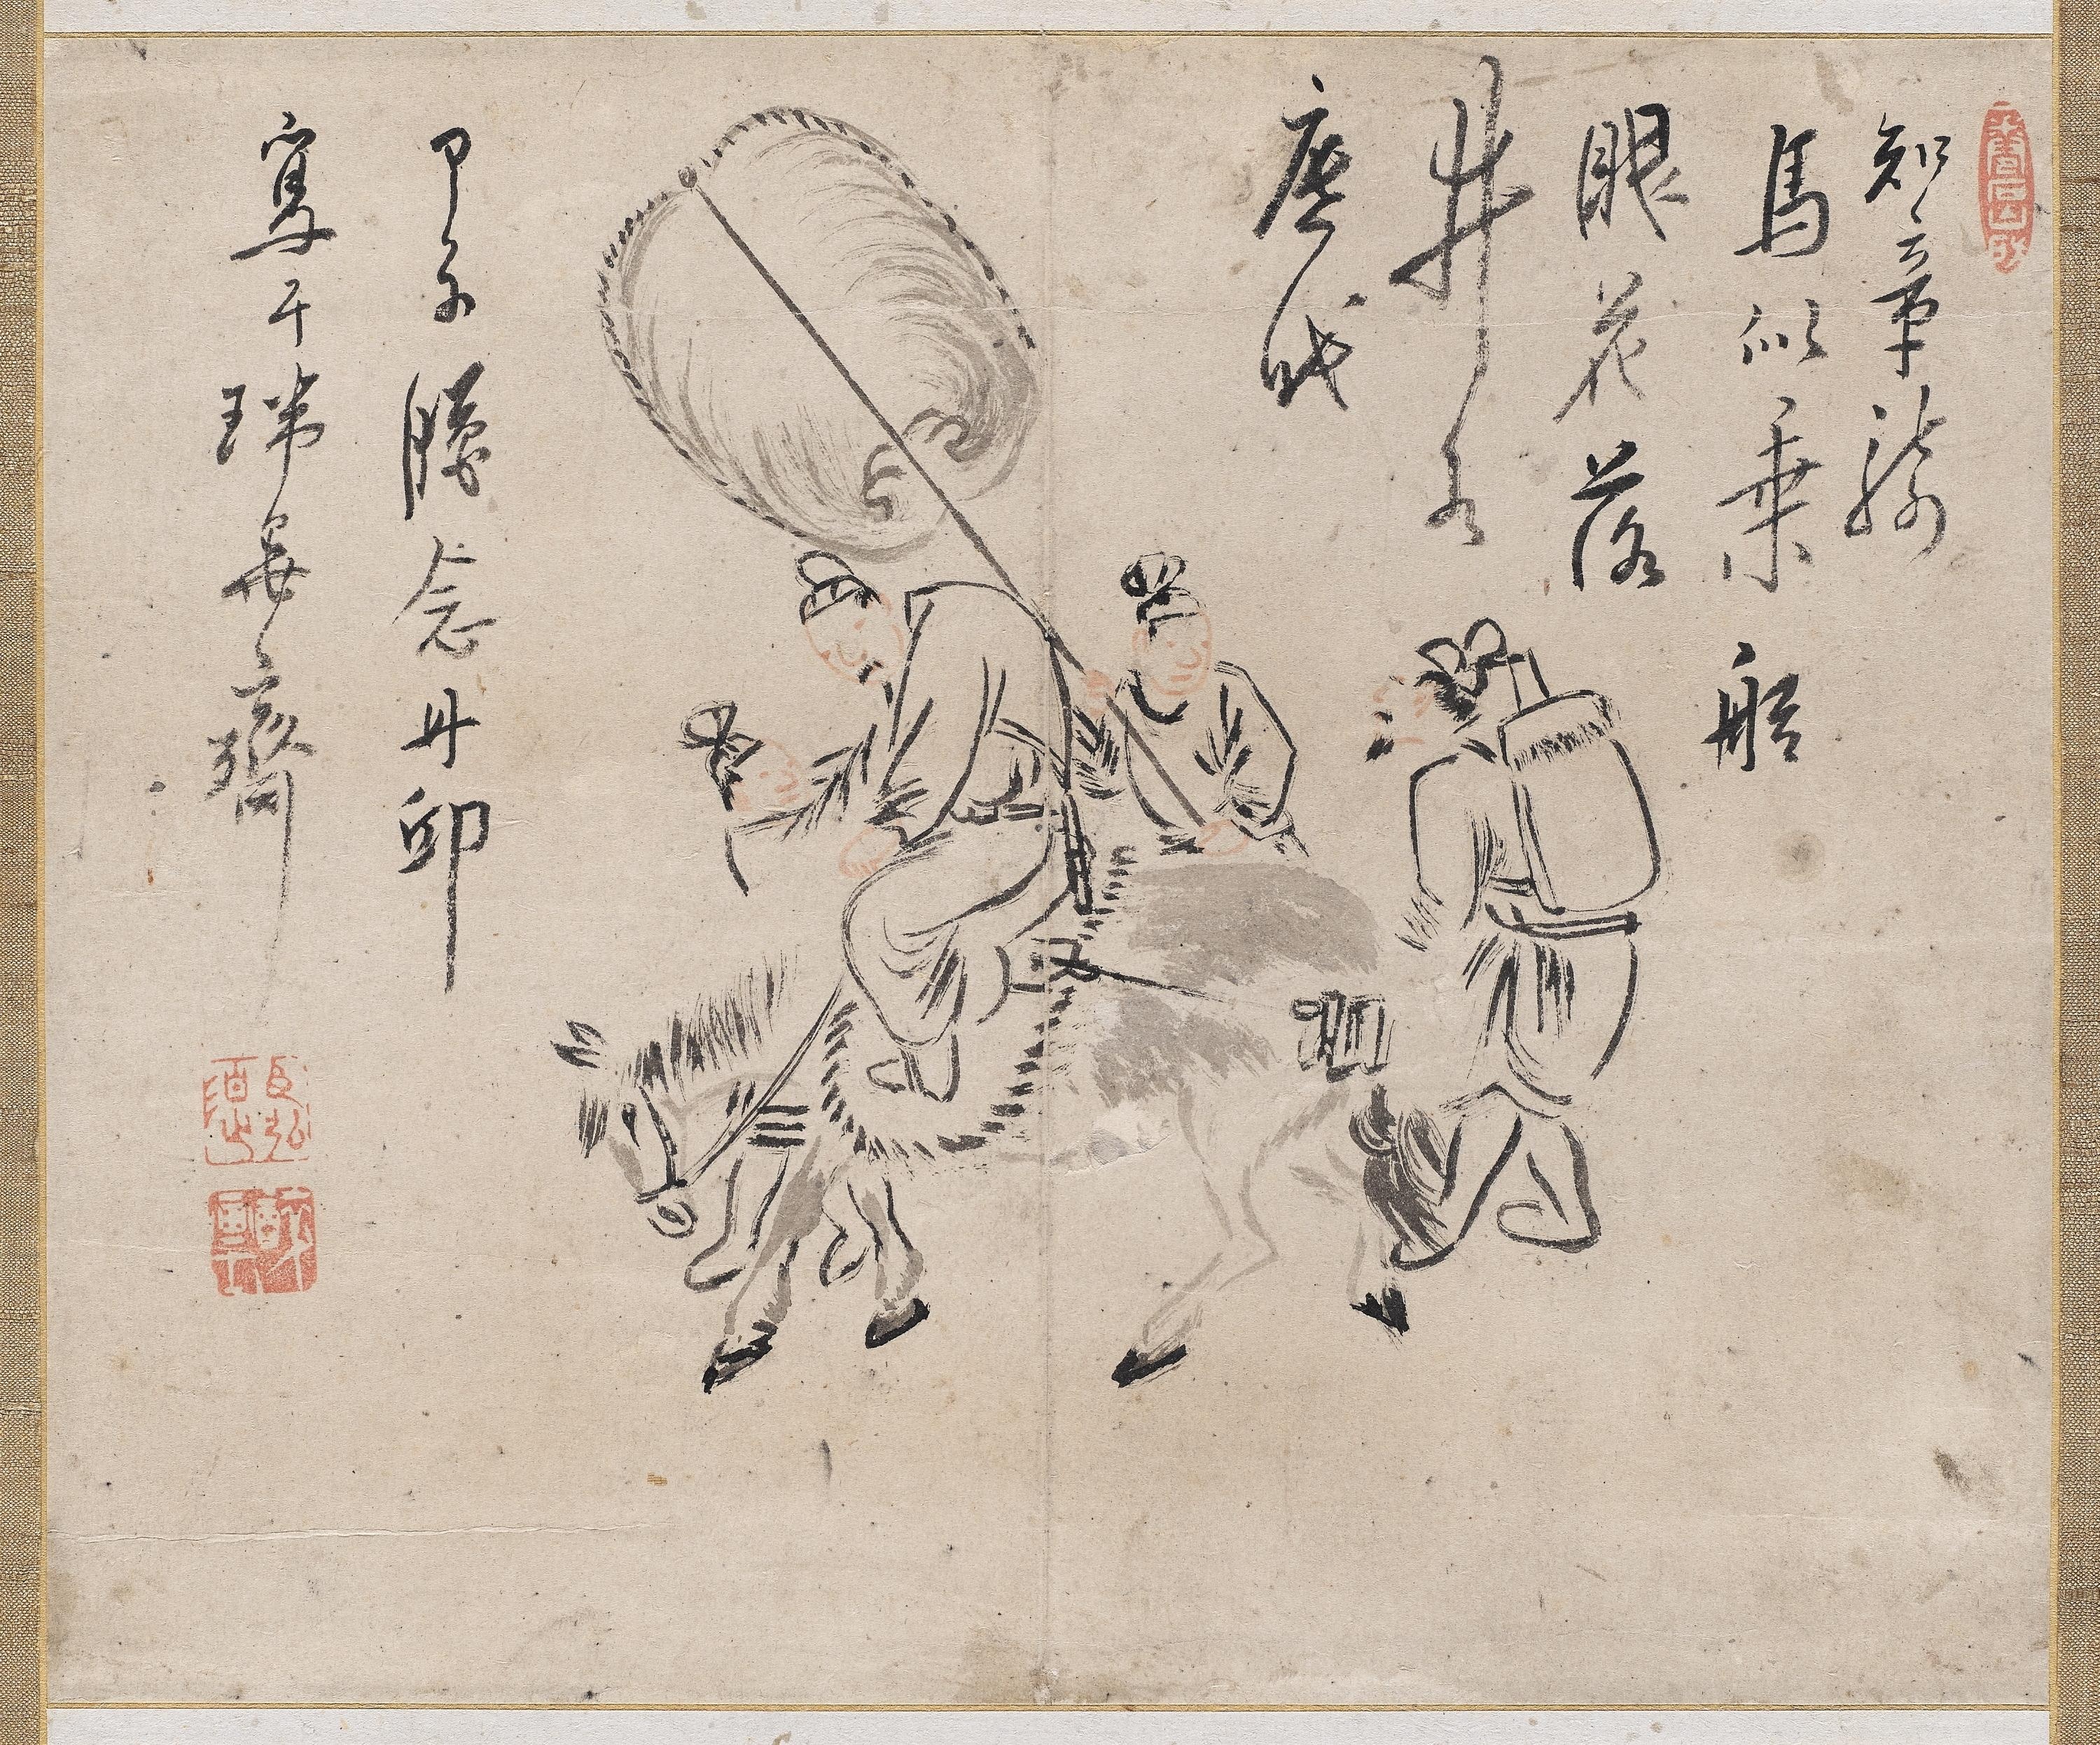 知章騎
馬似乘船
眼花落
井水
底眠
甲子臘念丹邱
寫于瑞墨齋